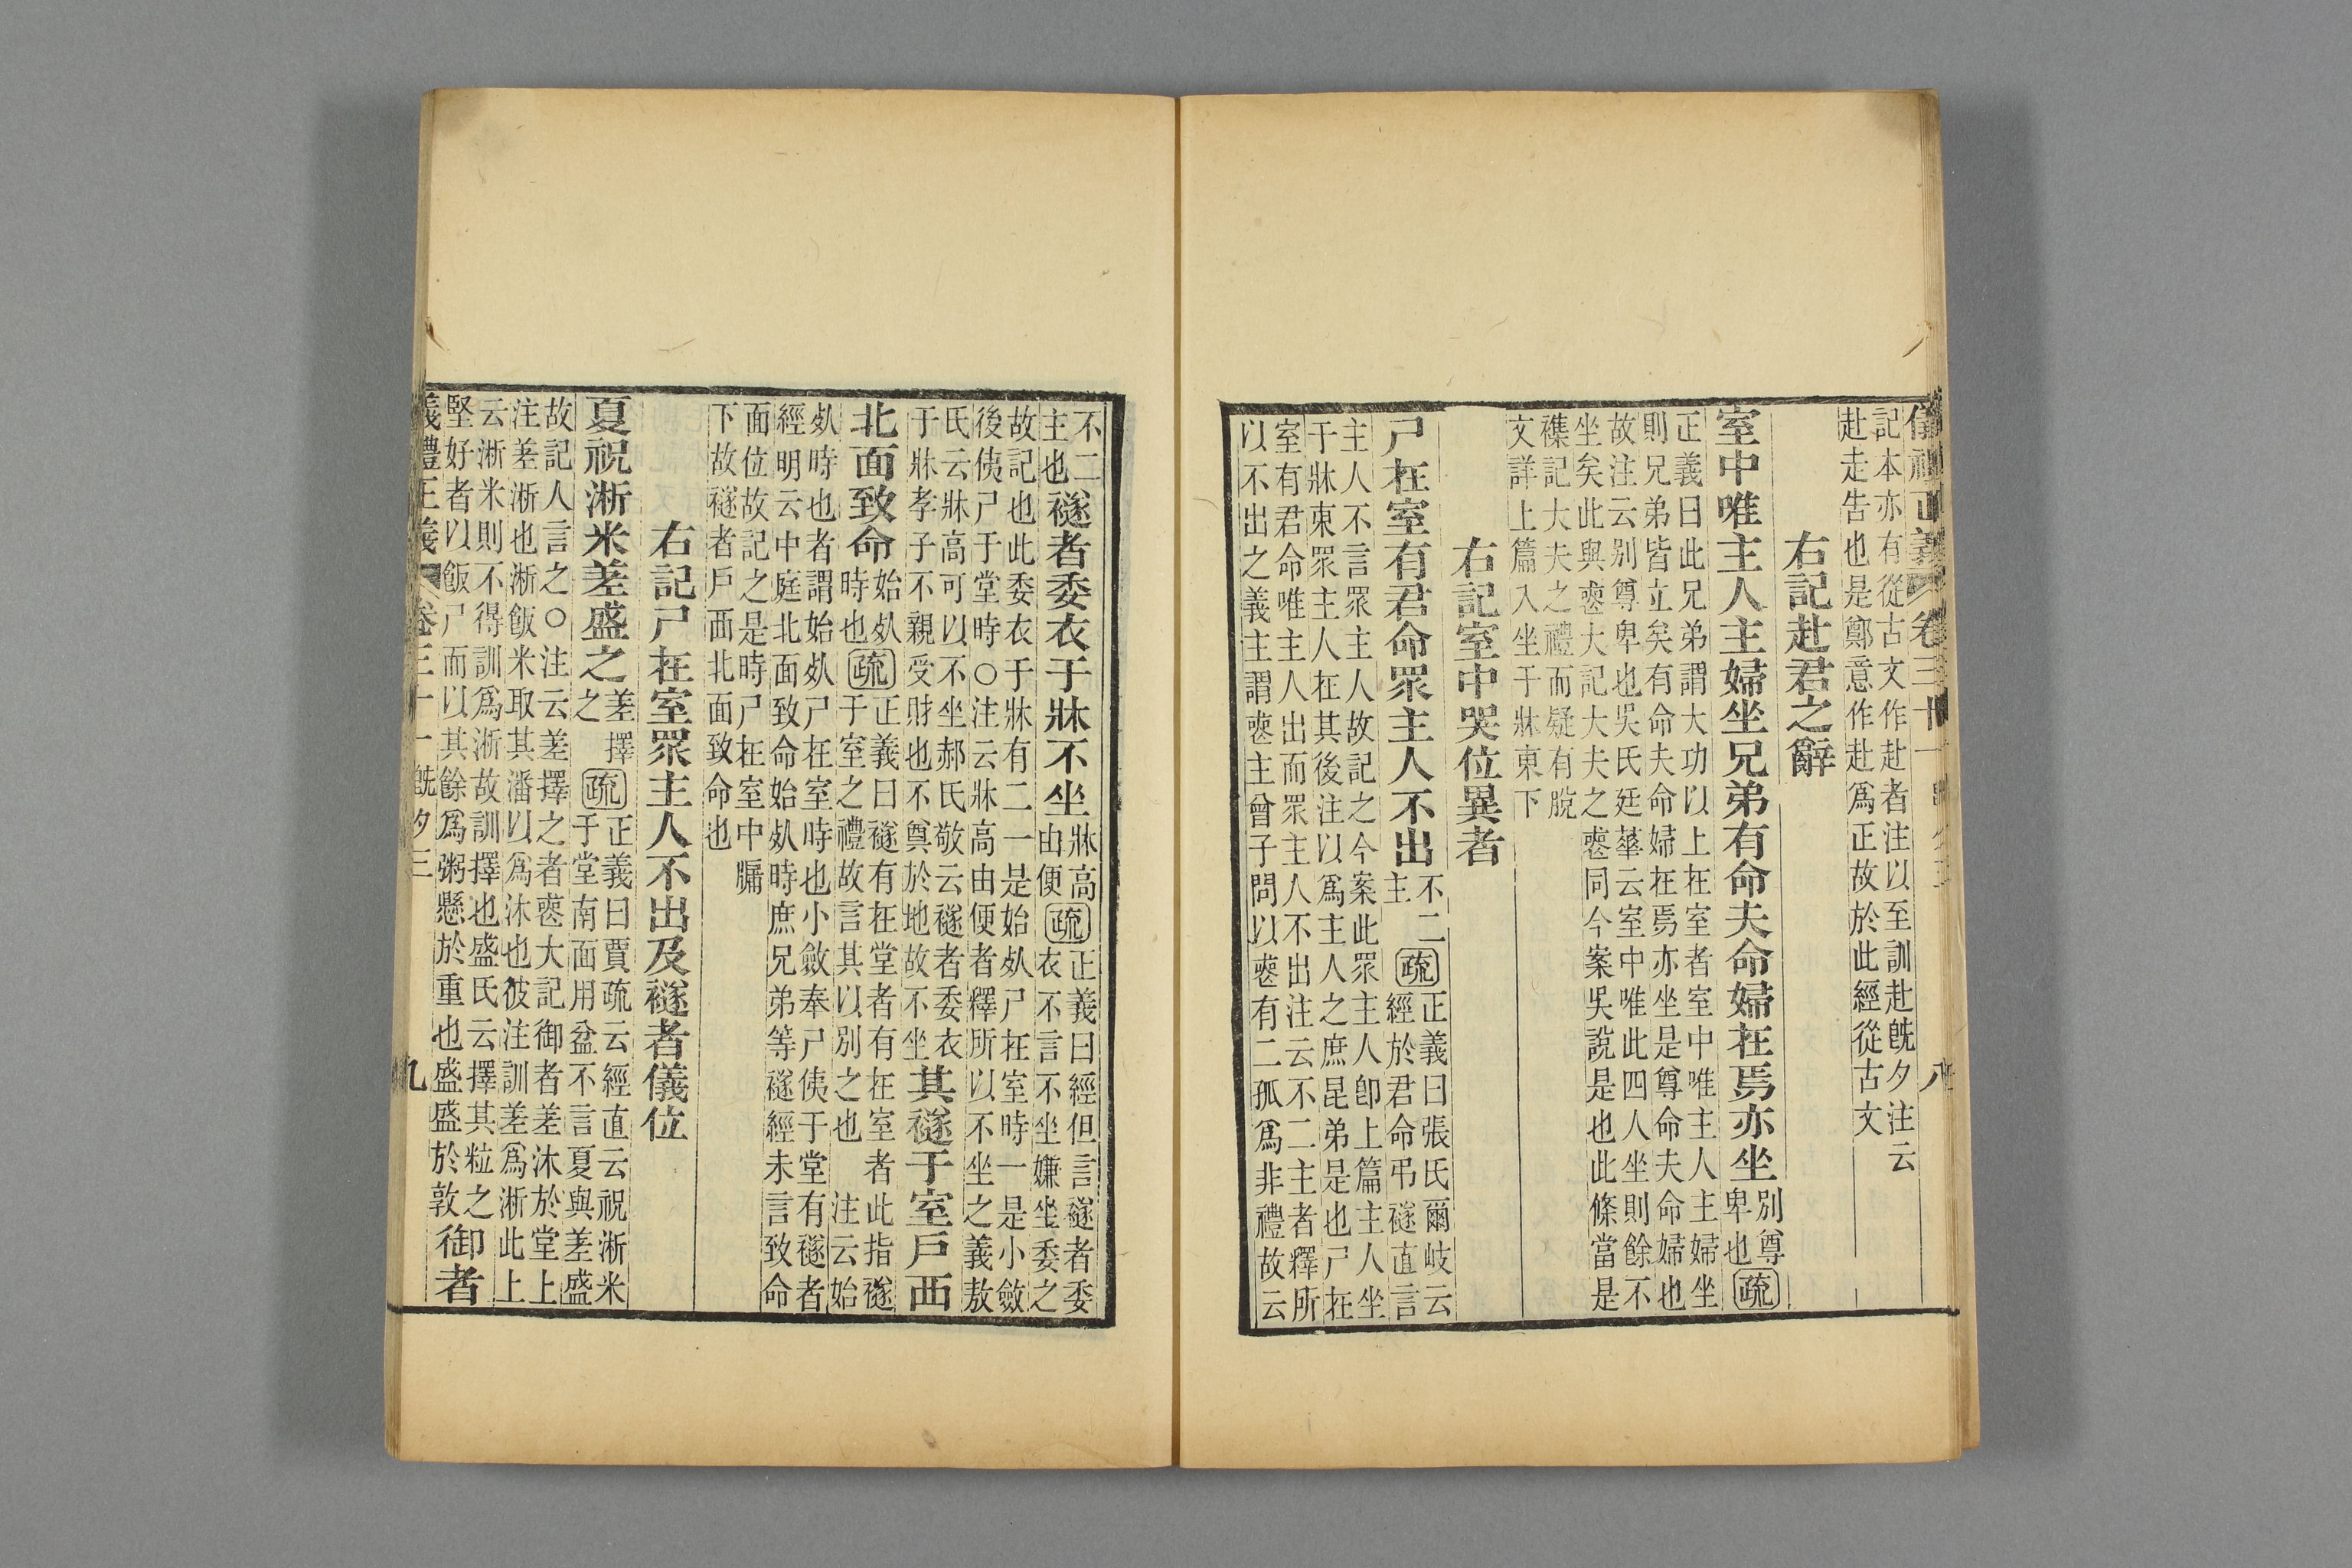 儀禮正義 卷三十一 八
記本亦有從古文作赴者注以至訓赴旣夕注云
赴走告也是鄭意作赴爲正故於此經從古文
右記赴君之辭
室中唯主人主婦坐兄弟有命夫命婦在焉亦坐別尊卑也疏
正義曰此兄弟謂大功以上在室者室中唯主人主婦坐
則兄弟皆立矣有命夫命婦在焉亦坐是尊命夫命婦也
故注云别尊卑也吳氏廷華云室中唯此四人坐則餘不
坐矣此與喪大記大夫之喪同今案吳說是也此條當是
襍記大夫之禮而疑有脫
文詳上篇入坐于牀東下
右記室中哭位異者
尸在室有君命眾主人不出不二主疏正義曰張氏爾岐云
經於君命弔襚直言
主人不言眾主人故記之今案此眾主人卽上篇主人坐
于牀東眾主人在其後注以爲主人之庶昆弟是也尸在
室有君命唯主人出而眾主人不出注云不二主者釋所
以不出之義主謂喪主曾子問以喪有二孤爲非禮故云
不二
主也襚者委衣于牀不坐牀高由便疏正義曰經但言襚者委
衣不言不坐嫌坐委之
故記也此委衣于牀有二一是始死尸在室時一是小斂
後侇尸于堂時○注云牀高由便者釋所以不坐之義敖
氏云牀高可以不坐郝氏敬云襚者委衣
于牀孝子不親受財也不奠於地故不坐其襚于室戶西
北面致命始死時也疏正義曰襚有在堂者有在室者此指襚
于室之禮故言其以別之也 注云始
死時也者謂始死尸在室時也小斂奉尸侇于堂有襚者
經明云中庭北面致命始死時庶兄弟等襚經未言致命
面位故記之是時尸在室中牖
下故襚者戶西北面致命也
右記尸在室眾主人不出及襚者儀位
夏祝淅米差盛之差擇之疏正義曰賈疏云經直云祝淅米
于堂南面用盆不言夏與差盛
故記人言之○注云差擇之者喪大記御者差沐於堂上
注差淅也淅飯米取其潘以爲沐也彼注訓差爲淅此上
云淅米則不得訓爲淅故訓擇也盛氏云擇其粒之
堅好者以飯尸而以其餘爲粥懸於重也盛盛於敦御者
儀禮正義 卷三十一旣夕三 九